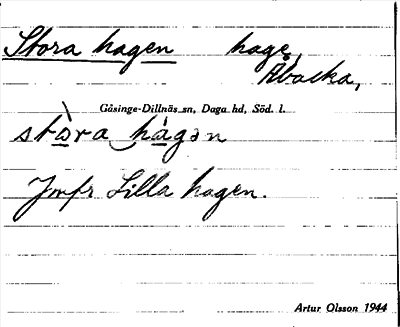 Stora hagen hage,
Åbacka,
Gåsinge-Dillnäs sn, Daga hd, Söd. l.
stòra hágən
Jmfr Lilla hagen.
Artur Olsson 1944